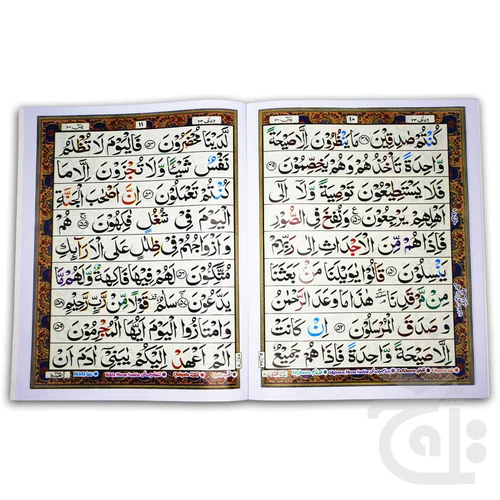 كُنْتُمْ صٰدِقِيْنَ ۝ مَا يَنْظُرُوْنَ اِلَّا صَيْحَةً
وَّاحِدَةً تَاْخُذُهُمْ وَهُمْ يَخِصِّمُوْنَ ۝
فَلَا يَسْتَطِيْعُوْنَ تَوْصِيَةً وَّلَاۤ اِلٰۤى
اَهْلِهِمْ يَرْجِعُوْنَ ۝ وَنُفِخَ فِى الصُّوْرِ
فَاِذَا هُمْ مِّنَ الْاَجْدَاثِ اِلٰى رَبِّهِمْ
يَنْسِلُوْنَ ۝ قَالُوْا يٰوَيْلَنَا مَنْۢ بَعَثَنَا
مِنْ مَّرْقَدِنَا هٰذَا مَا وَعَدَ الرَّحْمٰنُ
وَصَدَقَ الْمُرْسَلُوْنَ ۝ اِنْ كَانَتْ
اِلَّا صَيْحَةً وَّاحِدَةً فَاِذَا هُمْ جَمِيْعٌ
لَّدَيْنَا مُحْضَرُوْنَ ۝ فَالْيَوْمَ لَا تُظْلَمُ
نَفْسٌ شَيْـًٔا وَّلَا تُجْزَوْنَ اِلَّا مَا
كُنْتُمْ تَعْمَلُوْنَ ۝ اِنَّ اَصْحٰبَ الْجَنَّةِ
الْيَوْمَ فِىْ شُغُلٍ فٰكِهُوْنَ ۝ هُمْ
وَاَزْوَاجُهُمْ فِىْ ظِلٰلٍ عَلَى الْاَرَآئِكِ
مُتَّكِـُٔوْنَ ۝ لَهُمْ فِيْهَا فَاكِهَةٌ وَّلَهُمْ مَّا
يَدَّعُوْنَ ۝ سَلٰمٌ قَوْلًا مِّنْ رَّبٍّ رَّحِيْمٍ ۝
وَامْتَازُوا الْيَوْمَ اَيُّهَا الْمُجْرِمُوْنَ ۝
اَلَمْ اَعْهَدْ اِلَيْكُمْ يٰبَنِىْۤ اٰدَمَ اَنْ